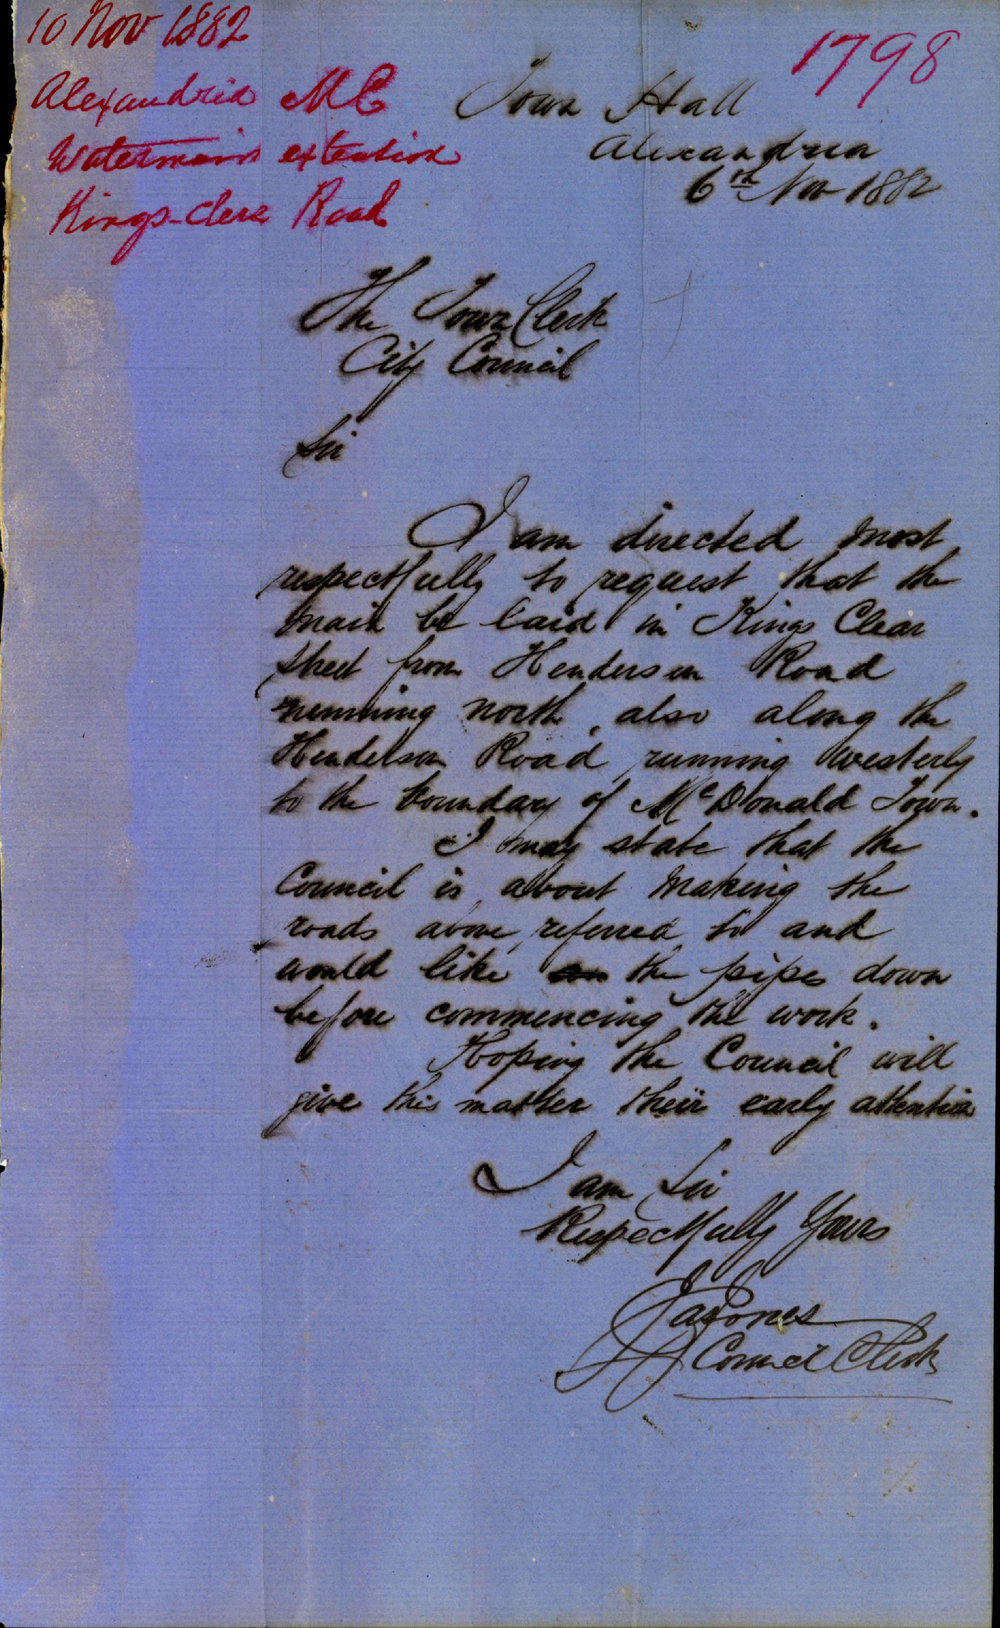 10 Nov 1882
Alexandria M C
Watermain extention
Kings-clere Road
1798
Town Hall
Alexandria
6th Nov 1882
The Town Clerk
City Council
Sir
I am directed most
respectfully to request that the
main be laid in Kings Clear
street from Henderson Road
running north, also along the
Henderson Road running Westerly
to the boundary of McDonald Town.
I may state that the
Council is about making the
roads above referred to and
would like the pipes down
before commencing the work.
Hoping the Council will
give this matter their early attention
I am Sir
Respectfully Yours
Jas Jones
Council Clerk